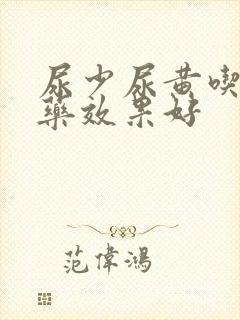 尿少尿黄喫
藥效果好
范偉鴻